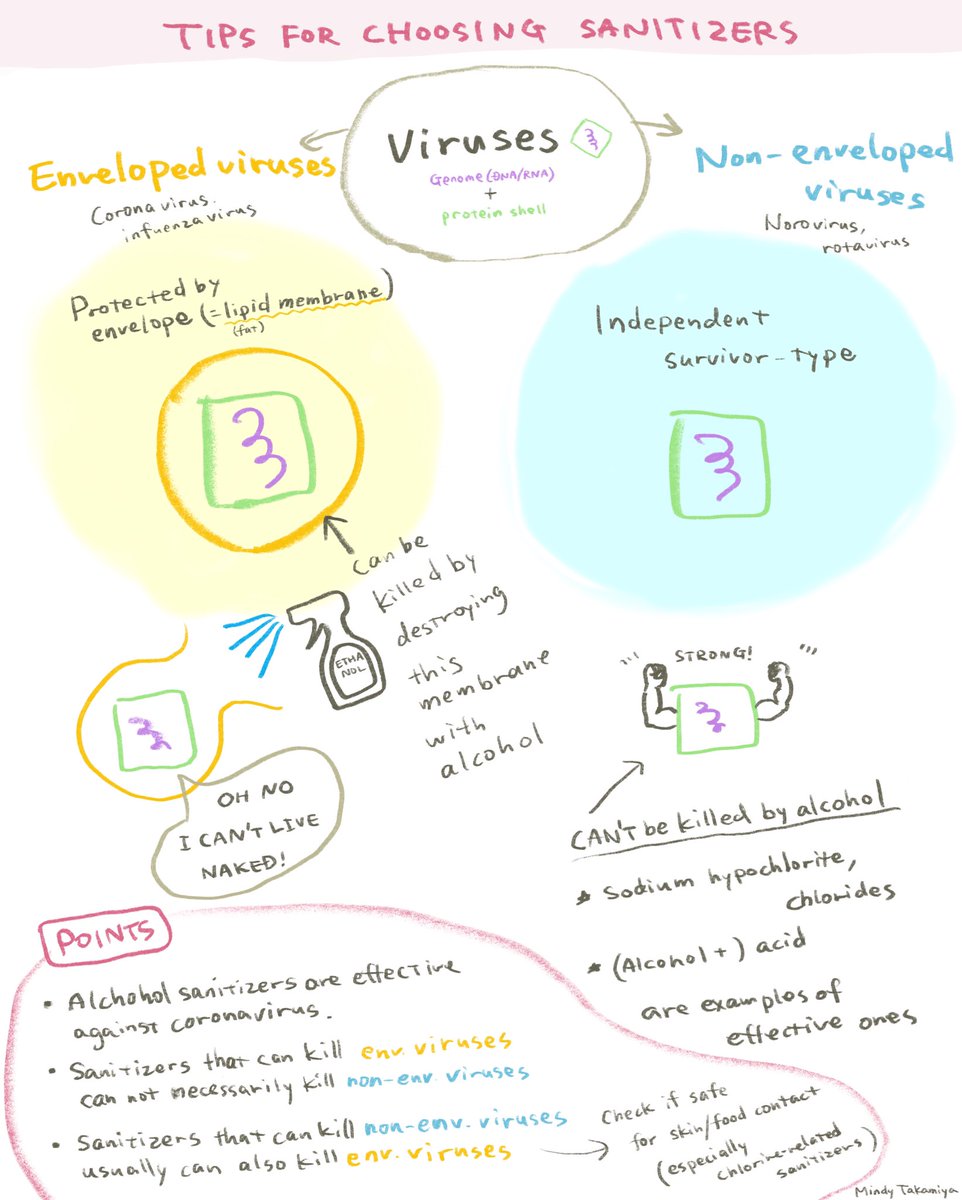 TIPS FOR CHOOSING SANITIZERS
Viruses
Genome (DNA/RNA)
+
protein shell
Enveloped viruses
Corona virus,
infuenza virus
Protected by
envelope (=lipid membrane)
(fat)
can be
killed by
destroying
this
membrane
with
alcohol
ETHA
NOL
OH NO
I CAN'T LIVE
NAKED!
Non-enveloped
viruses
Norovirus,
rotavirus
Independent
survivor-type
STRONG!
CAN'T be killed by alcohol
* Sodium hypochlorite,
chlorides
* (Alcohol +) acid
are examples of
effective ones
POINTS
• Alchohol sanitizers are effective
against coronavirus.
• Sanitizers that can kill env. viruses
can not necessarily kill non-env. viruses
• Sanitizers that can kill non-env. viruses
usually can also kill env. viruses
Check if safe
for skin/food contact
(especially
chlorine-related
sanitizers)
Mindy Takamiya